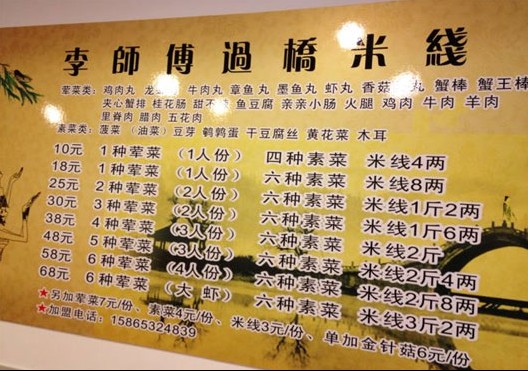 李師傅過橋米綫
荤菜类：鸡肉丸 龙 牛肉丸 章鱼丸 墨鱼丸 虾丸 香菇 丸 蟹棒 蟹王棒
夹心蟹排 桂花肠 甜不 鱼豆腐 亲亲小肠 火腿 鸡肉 牛肉 羊肉
里脊肉 腊肉 五花肉
素菜类：菠菜（油菜）豆芽 鹌鹑蛋 干豆腐丝 黄花菜 木耳
10元 1种荤菜（1人份） 四种素菜 米线4两
18元 1种荤菜（1人份） 六种素菜 米线8两
25元 2种荤菜（2人份） 六种素菜 米线1斤2两
30元 3种荤菜（2人份） 六种素菜 米线1斤6两
38元 4种荤菜（3人份） 六种素菜 米线2斤
48元 5种荤菜（3人份） 六种素菜 米线2斤4两
58元 6种荤菜（4人份） 六种素菜 米线2斤8两
68元 6种荤菜（大虾） 六种素菜 米线3斤2两
★另加荤菜7元/份、素菜4元/份、米线3元/份、单加金针菇6元/份
★加盟电话：15865324839